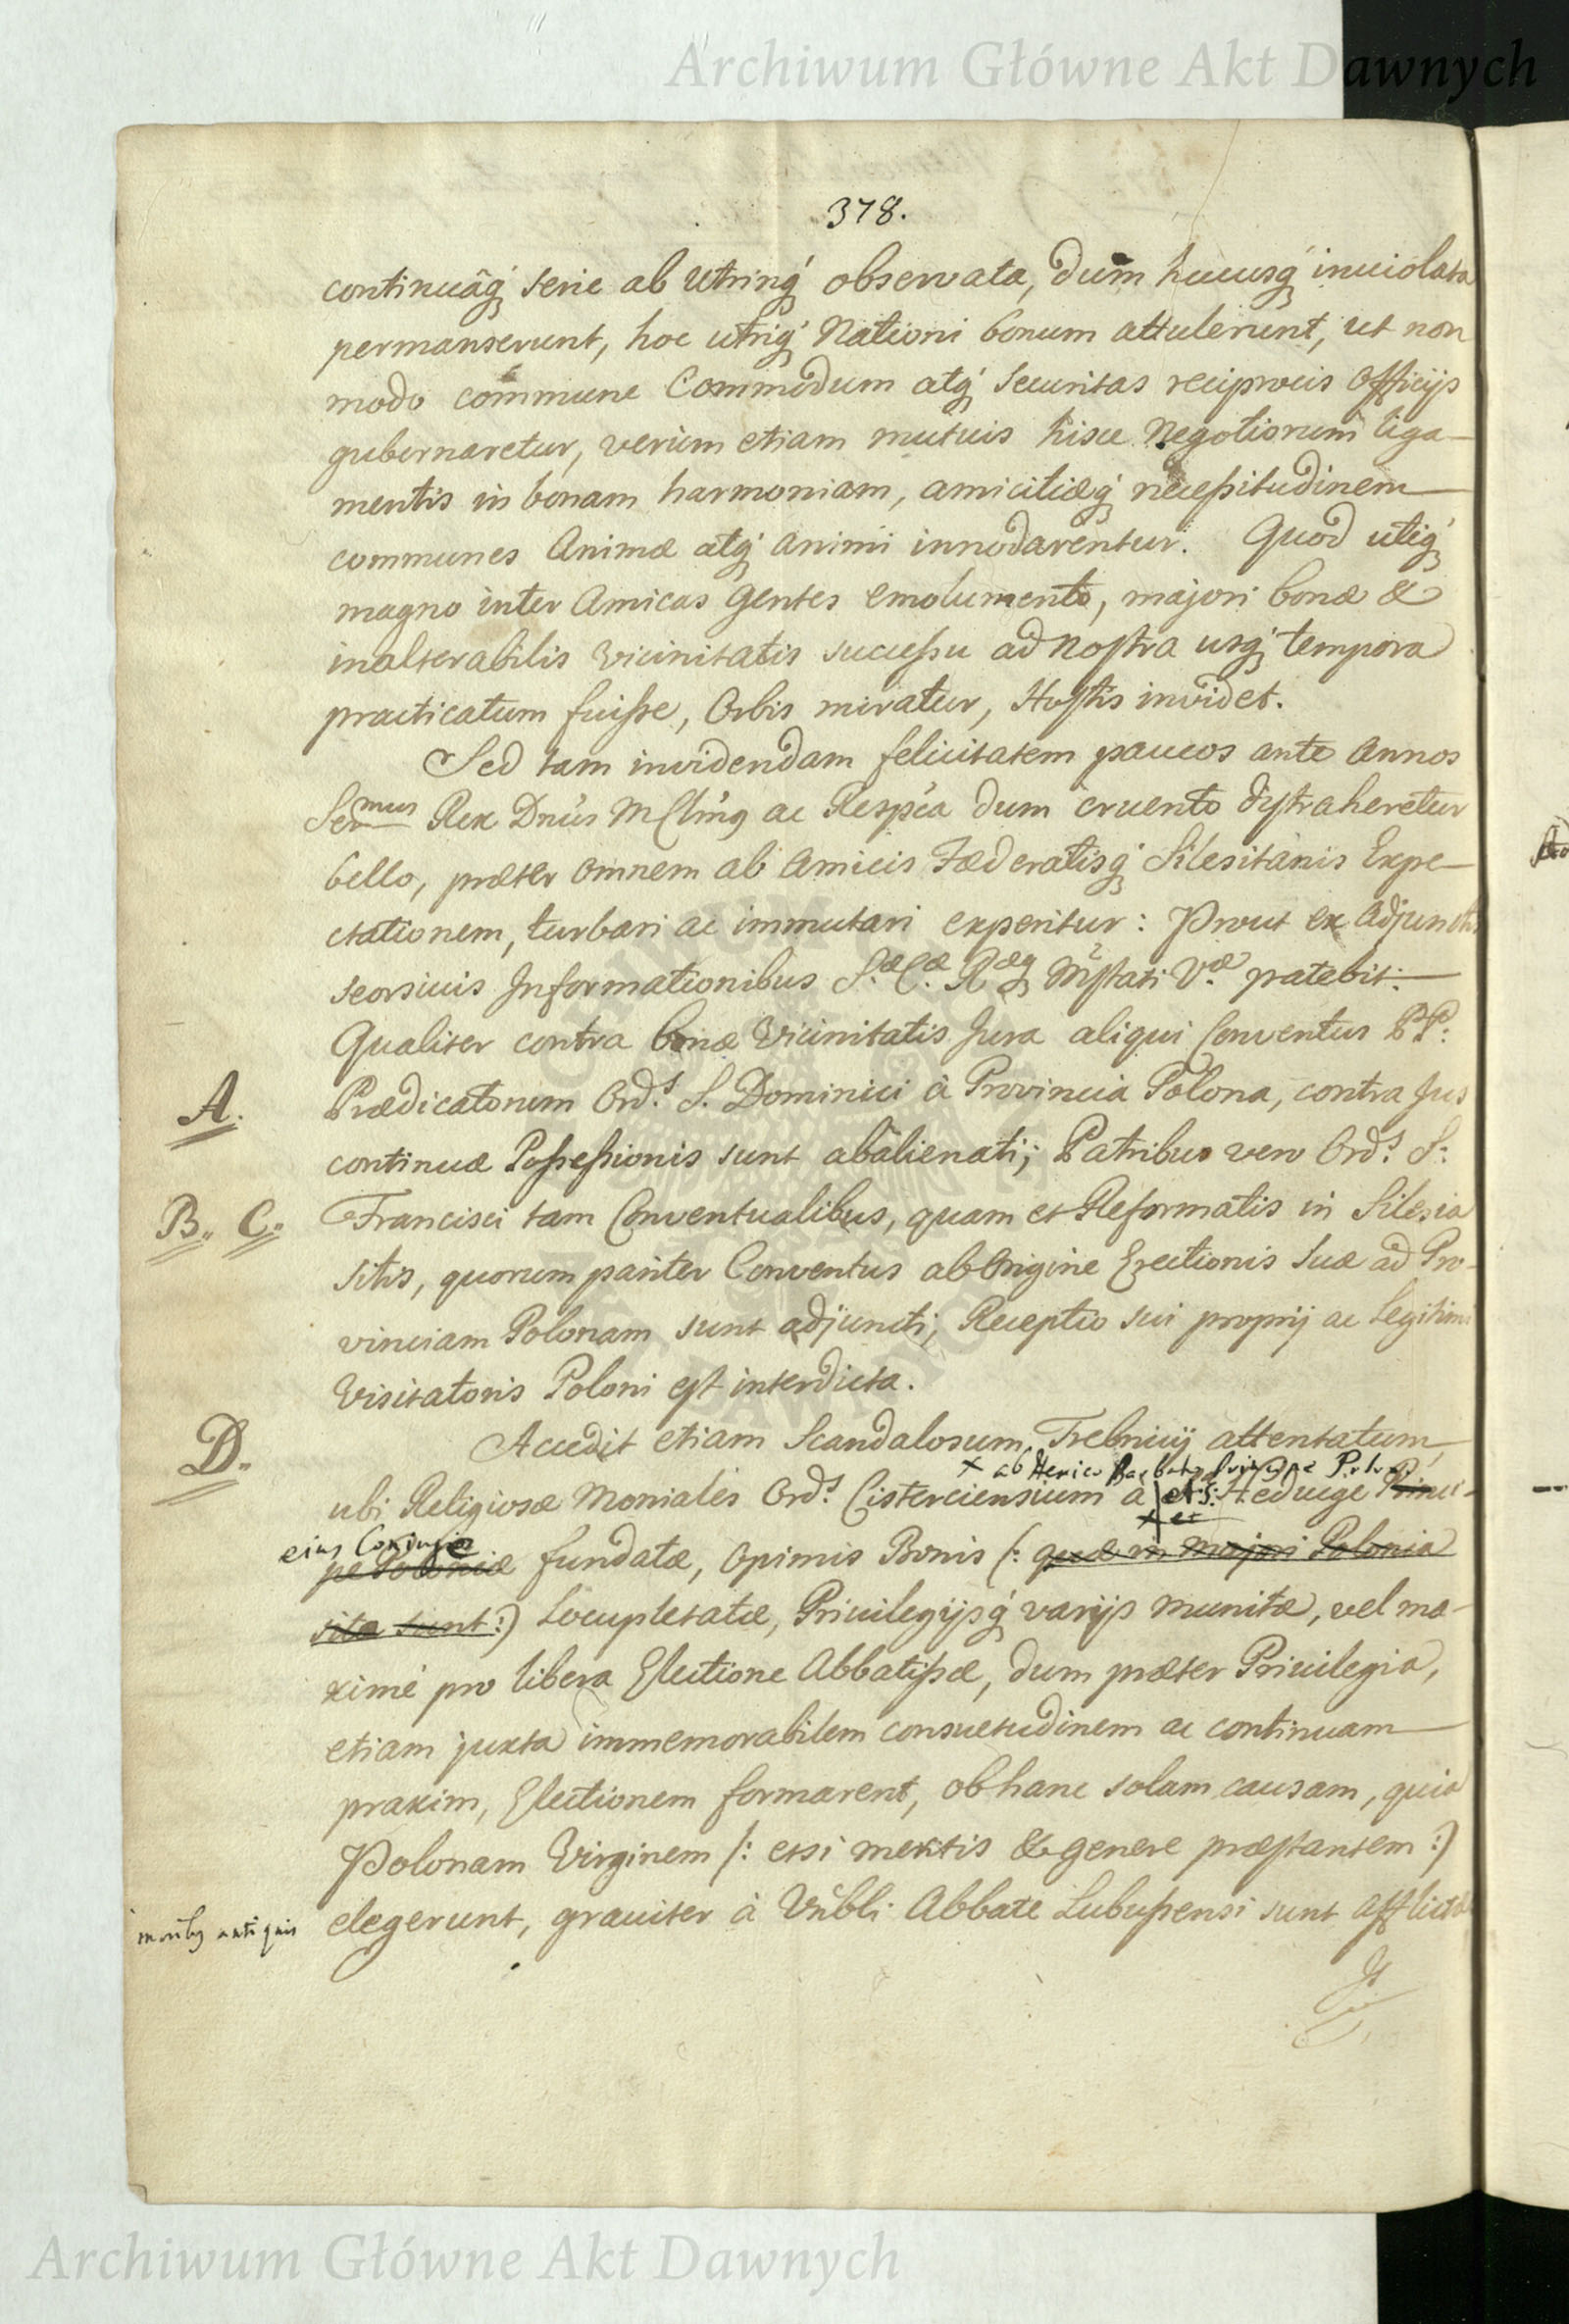 Archiwum Główne Akt Dawnych
378.
continuâq́ serie ab utrinq́ observata, dum hucusq́ inuiolata
permanserunt, hoc utriq́ Nationi bonum attulerunt, ut non
modo commune Commodum atq́ securitas reciprocis Officijs
gubernaretur, verùm etiam mutuis hisce Negotiorum liga-
mentis in bonam harmoniam, amicitiæq́ necessitudinem
communes Animæ atq́ animi innodarentur. Quod utiq́
magno inter Amicas Gentes emolumento, majori bonæ &
inalterabilis vicinitatis successu ad nostra usq́ tempora
practicatum fuisse, Orbis miratur, Hostis invidet.
Sed tam invidendam felicitatem paucos ante Annos
Sermus Rex Dnús M Clmg ac Respca dum cruento distraheretur
bello, præter omnem ab Amicis Fæderatisq́ Silesitanis Expe-
ctationem, turbari ac immutari experitur: Prout ex adjunctis
seorsivis Informationibus S.æ C.æ R.æq Mstati V.æ patebit:
Qualiter contra bonæ Vicinitatis Jura aliqui Conventus PP:
A.
Prædicatorum Ord.s S. Dominici à Provincia Polona, contra Jus
continuæ Possessionis sunt abalienati; Patribus vero Ord.s S:
B. C.
Francisci tam Conventualibus, quam et Reformatis in Silesia
sitis, quorum pariter Conventus ab Origine Erectionis suæ ad Pro-
vinciam Polonam sunt adjuncti, Receptio sui proprij ac Legitimi
Visitatoris Poloni est interdicta.
D.
Accedit etiam Scandalosum, Trebnicij attentatum,
x ab Henrico Barbato Principe Polon.
ubi Religiosæ Moniales Ord.s Cisterciensium à et S: Heduige Princi-
x et
eius Coniuge
pe Poloniæ fundatæ, Opimis Bonis (: quæ in majori Polonia
sita sunt :) Locupletatæ, Priuilegijsq́ varijs munitæ, vel ma-
ximè pro libera Electione Abbatissæ, dum præter Priuilegia,
etiam juxta immemorabilem consuetudinem ac continuam
praxim, Electionem formarent, ob hanc solam causam, quia
Polonam Virginem (: etsi meritis & genere præstantem :)
moribq antiquis
elegerunt, grauiter à Vnbli Abbate Lubussensi sunt afflictæ
Archiwum Główne Akt Dawnych